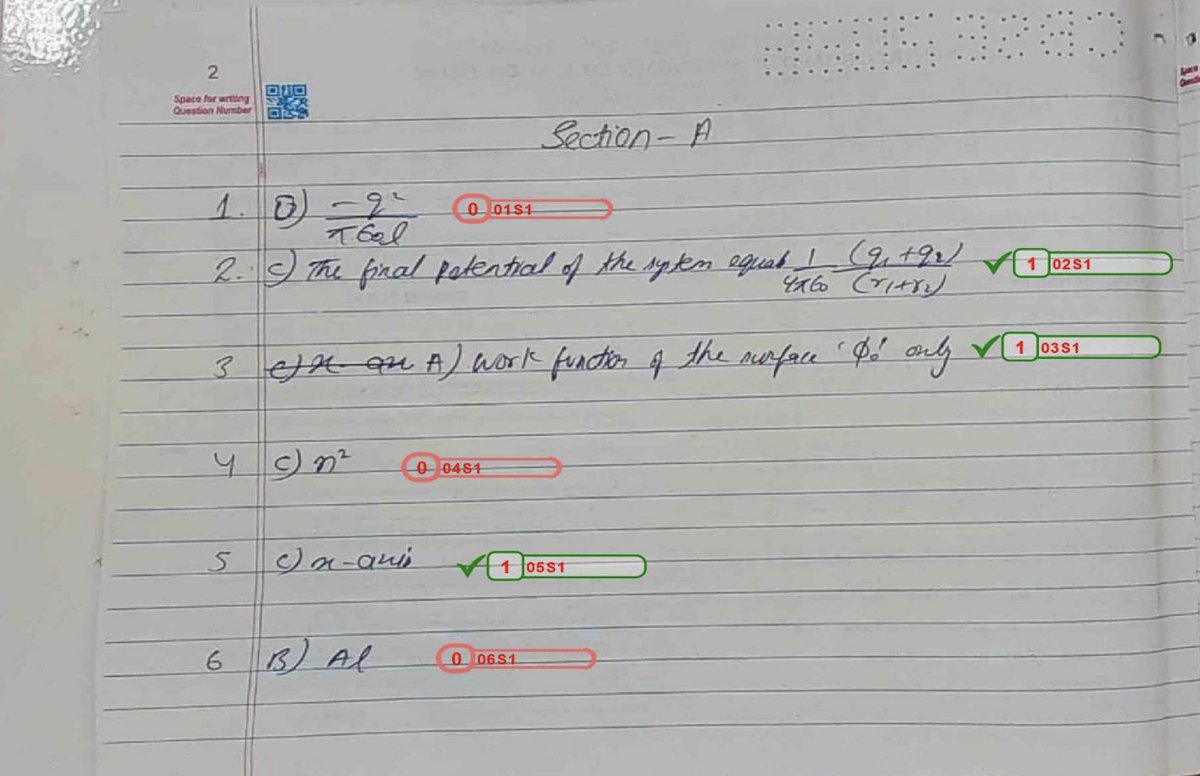 2
Space for writing
Question Number
Section - A
1. D) -q² / πε₀l 0 01S1
2. C) The final potential of the system equal 1/4πε₀ (q₁+q₂)/(r₁+r₂) 1 02S1
3 c) x- ax A) work function of the surface 'ϕ₀' only 1 03S1
4 C) n² 0 04S1
5 C) x-axis 1 05S1
6 B) Al 0 06S1